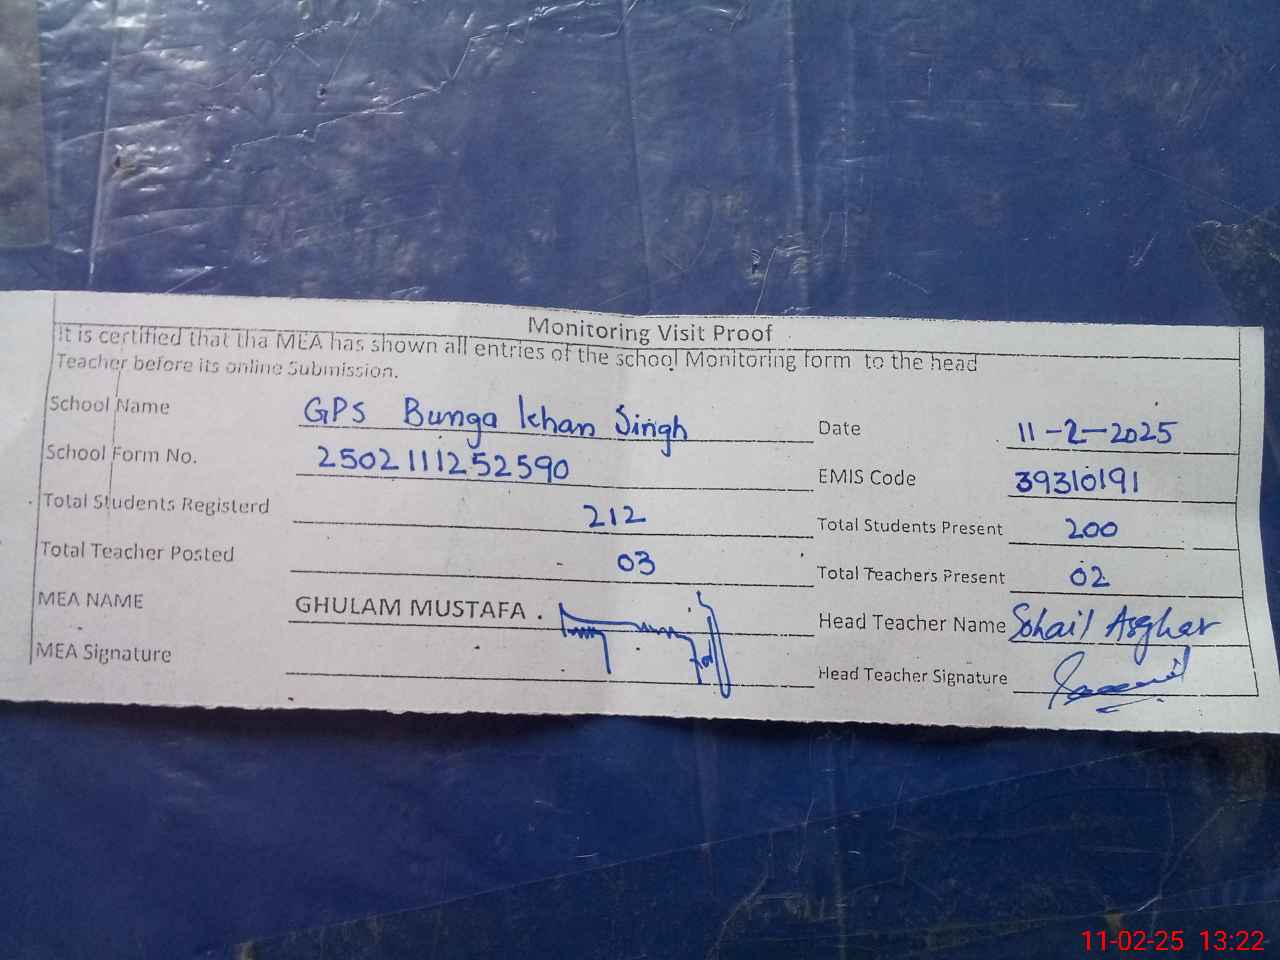 Monitoring Visit Proof
It is certified that tha MEA has shown all entries of the school Monitoring form to the head
Teacher before its online Submission.
School Name GPS Bunga Khan Singh Date 11-2-2025
School Form No. 25021111252590 EMIS Code 39310191
Total Students Registerd 212 Total Students Present 200
Total Teacher Posted 03 Total Teachers Present 02
MEA NAME GHULAM MUSTAFA . Head Teacher Name Sohail Asghar
MEA Signature Head Teacher Signature
11-02-25 13:22